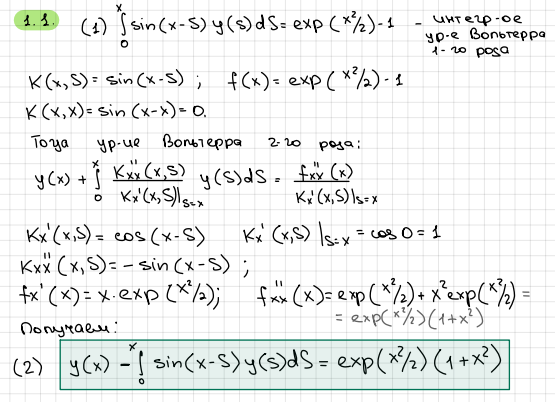 1.1. (1) ∫₀ˣ sin(x-s) y(s)ds = exp(x²/2)-1 - интегр-ое
ур-е Вольтерра
1-го рода
K(x,s) = sin(x-s) ; f(x) = exp(x²/2)-1
K(x,x) = sin(x-x) = 0.
Тогда ур-ие Вольтерра 2-го рода:
y(x) + ∫₀ˣ K''xx(x,s)/Kx'(x,s)|s=x y(s)ds = f''xx(x)/Kx'(x,s)|s=x
Kx'(x,s) = cos(x-s) Kx'(x,s)|s=x = cos0 = 1
Kxx''(x,s) = -sin(x-s) ;
fx'(x) = x·exp(x²/2); f''xx(x) = exp(x²/2) + x²exp(x²/2) =
= exp(x²/2)(1+x²)
Получаем:
(2) y(x) - ∫₀ˣ sin(x-s)y(s)ds = exp(x²/2)(1+x²)